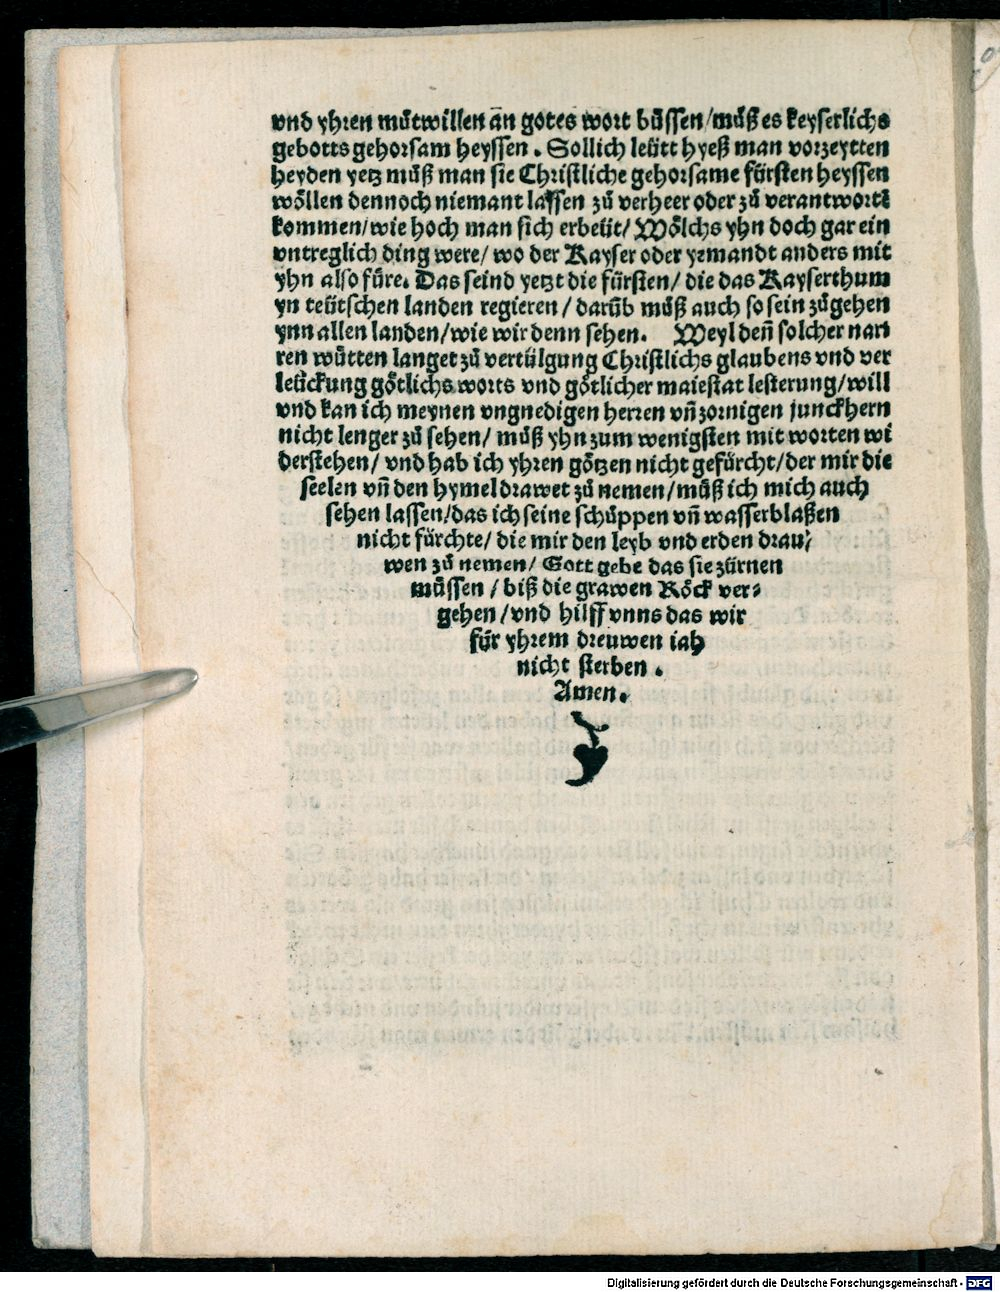 vnd yhren můtwillen an gotes wort bůssen/můß es keyserlichs
gebotts gehorsam heyssen. Sollich leütt hyeß man vorzeytten
heyden yetz můß man sie Christliche gehorsame fürsten heyssen
wöllen dennoch niemant lassen zů verheer oder zů verantwortē
kommen/wie hoch man sich erbeüt/ Wölchs yhn doch gar ein
vntreglich ding were/ wo der Kayser oder yemandt anders mit
yhn also füre. Das seind yetzt die fürsten/ die das Kayserthum
yn teütschen landen regieren/ darüb můß auch so sein zůgehen
ynn allen landen/wie wir denn sehen. Weyl deñ solcher nar
ren wütten langet zů vertülgung Christlichs glaubens vnd ver
leückung götlichs worts vnd götlicher maiestat lesterung/will
vnd kan ich meynen vngnedigen herren vñ zornigen junckhern
nicht lenger zů sehen/ můß yhn zum wenigsten mit worten wi
derstehen/ vnd hab ich yhren götzen nicht gefürcht/der mir die
seelen vñ den hymel drawet zů nemen/můß ich mich auch
sehen lassen/das ich seine schüppen vñ wasserblaßen
nicht fürchte/ die mir den leyb vnd erden drau/
wen zů nemen/ Gott gebe das sie zürnen
müssen/ biß die grawen Röck ver⸗
gehen/vnd hilff vnns das wir
für yhrem dreuwen iah
nicht sterben.
Amen.
Digitalisierung gefördert durch die Deutsche Forschungsgemeinschaft - DFG